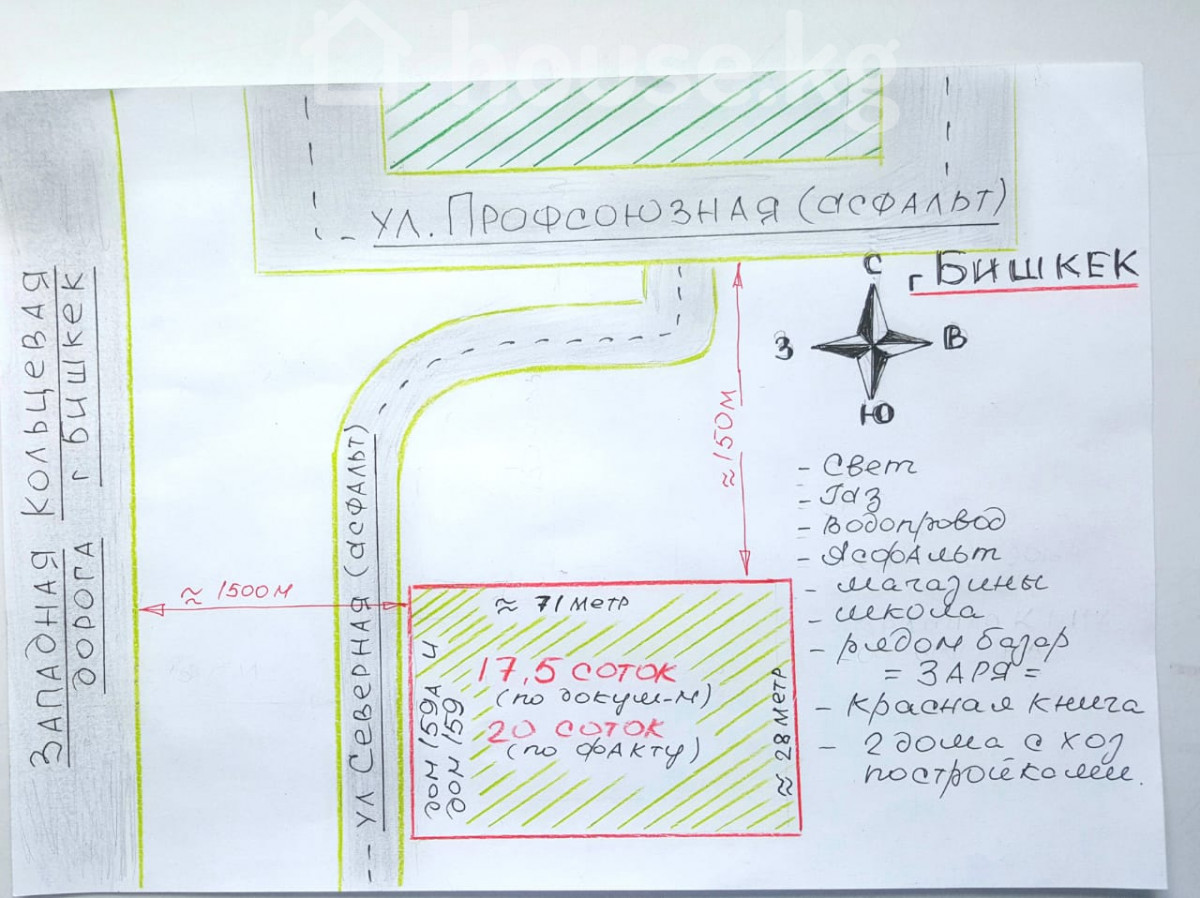 house.kg
ул. Профсоюзная (асфальт)
г Бишкек
С
З
В
Ю
Западная Кольцевая
дорога г Бишкек
≈ 1500 м
≈ 150 м
ул Северная (асфальт)
≈ 71 метр
17,5 соток
(по докум-м)
20 соток
(по факту)
дом 159А и
дом 159
≈ 28 метр
- Свет
- Газ
- Водопровод
- Асфальт
- магазины
- школа
- рядом базар
= ЗАРЯ =
- красная книга
- 2 дома с хоз
постройками.